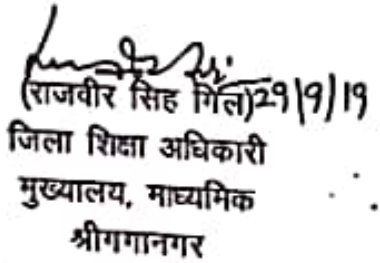 (राजवीर सिह गिल) 29/9/19
जिला शिक्षा अधिकारी
मुख्यालय, माध्यमिक
श्रीगगानगर